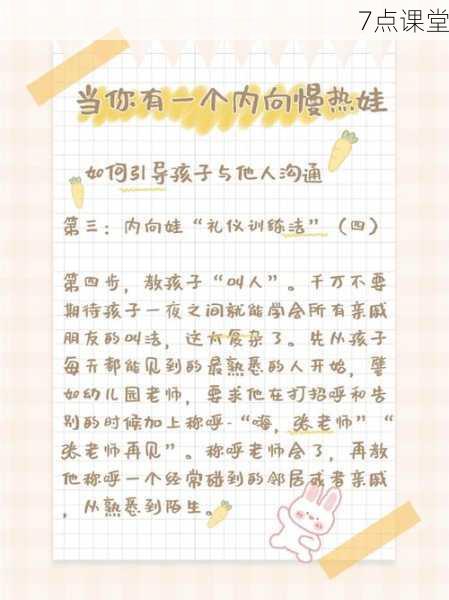 7点课堂
当你有一个内向慢热娃
如何引导孩子与他人沟通
第三：内向娃“礼仪训练法”（四）
第四步，教孩子“叫人”。千万不要
期待孩子一夜之间就能学会所有亲戚
朋友的叫法，这太复杂了。先从孩子
每天都能见到的最熟悉的人开始，譬
如幼儿园老师，要求他在打招呼和告
别的时候加上称呼-“嗨，张老师”“
张老师再见”。称呼老师会了，再教
他称呼一个经常碰到的邻居或者亲戚
，从熟悉到陌生。